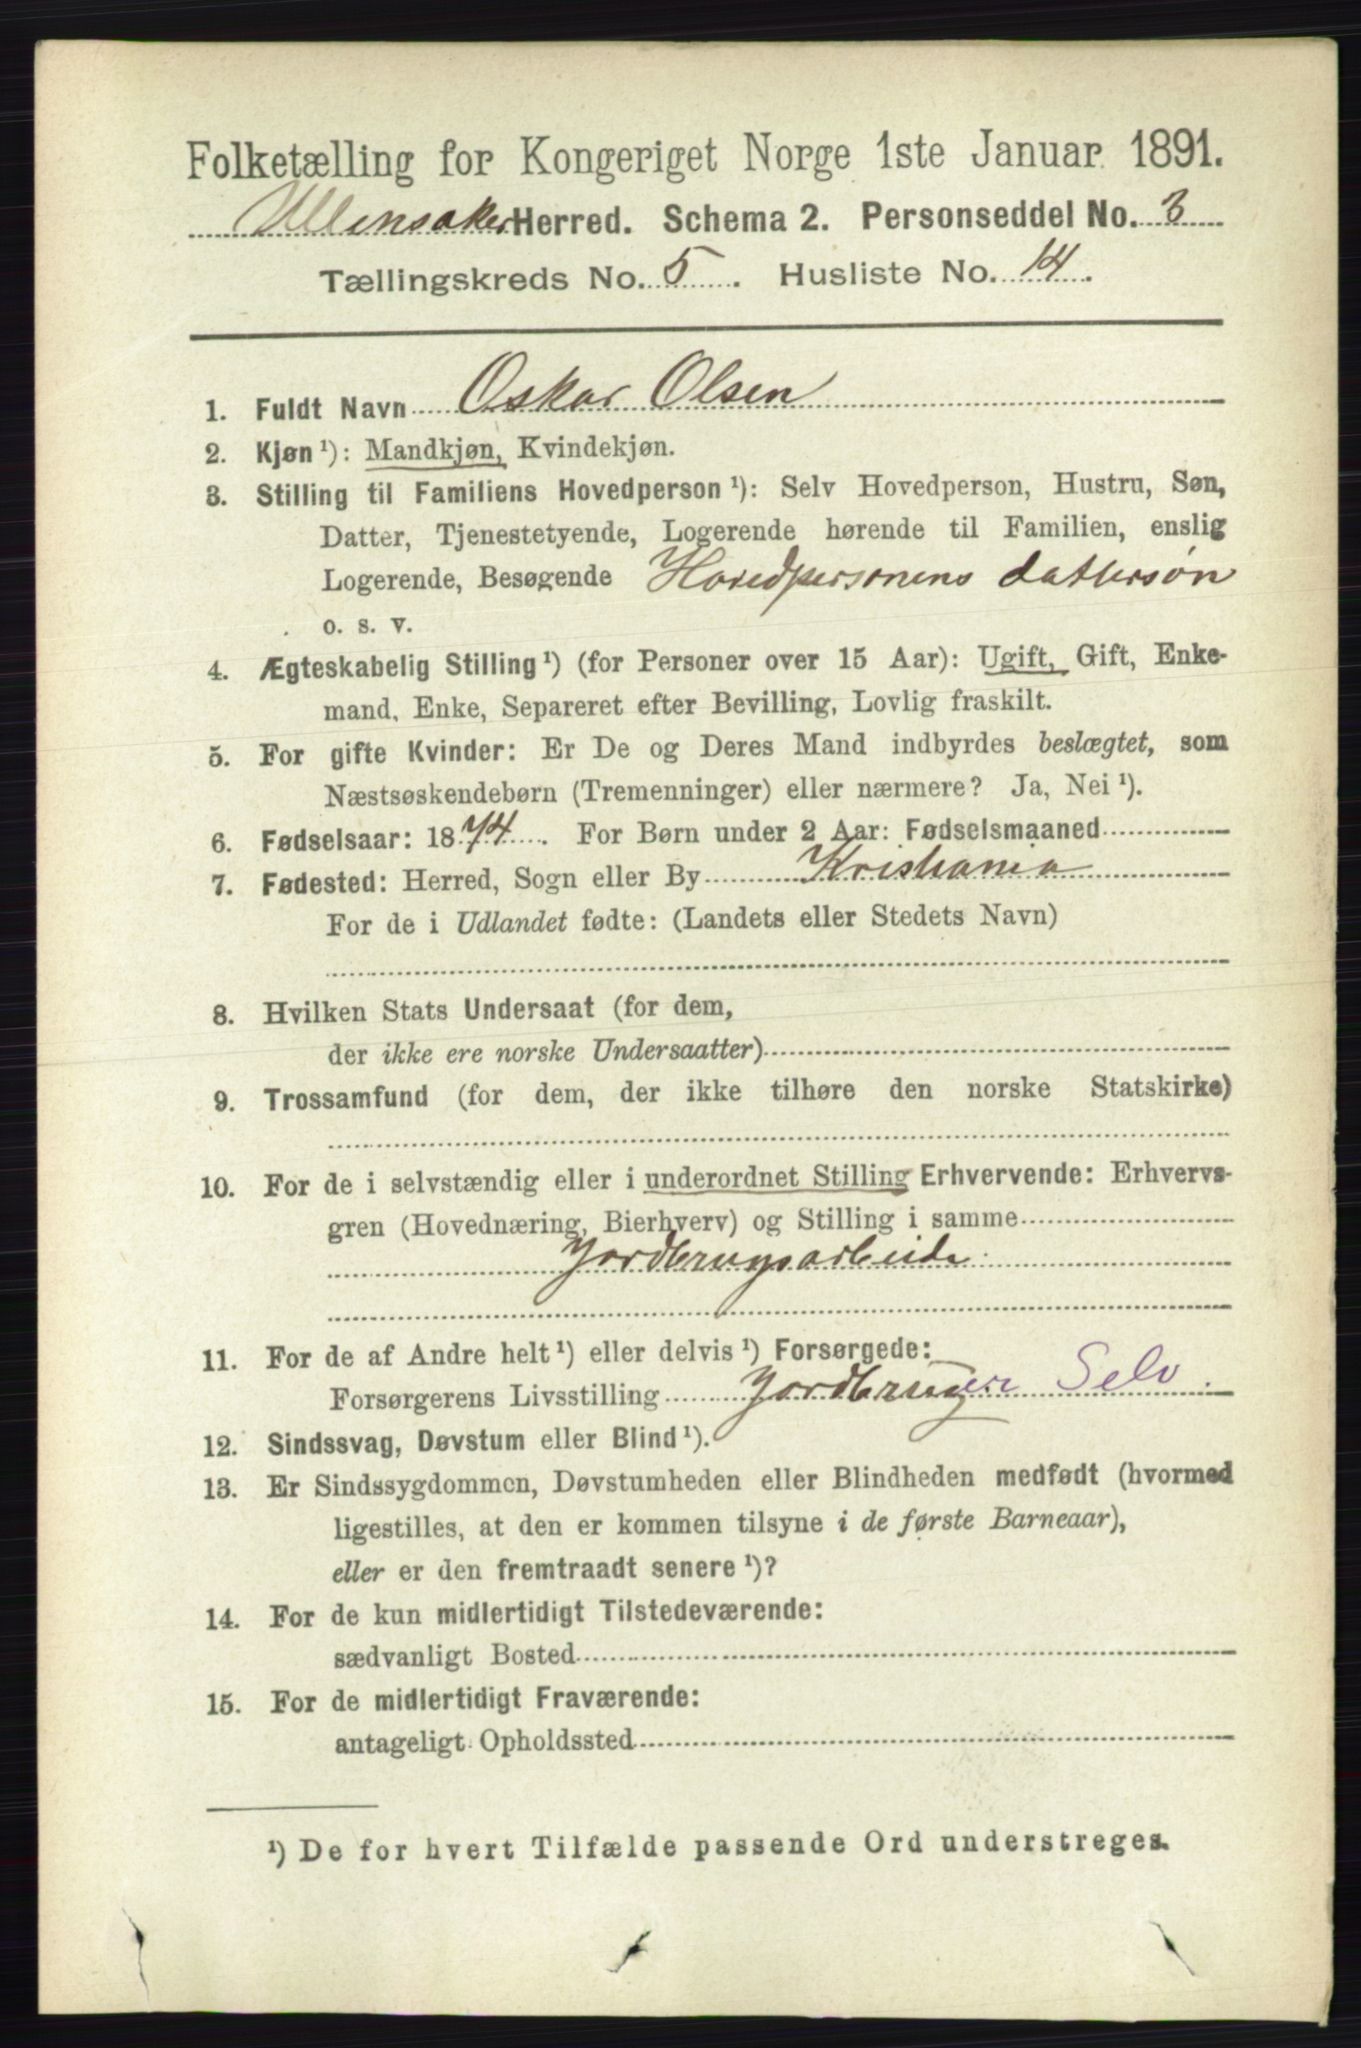 Folketælling for Kongeriget Norge 1ste Januar 1891.
Ullensaker Herred. Schema 2. Personseddel No. 3
Tællingskreds No. 5. Husliste No. 14.
1. Fuldt Navn Oskar Olsen
2. Kjøn ¹): Mandkjøn, Kvindekjøn.
3. Stilling til Familiens Hovedperson ¹): Selv Hovedperson, Hustru, Søn,
Datter, Tjenestetyende, Logerende hørende til Familien, enslig
Logerende, Besøgende Hovedpersonens dattersøn
o. s. v.
4. Ægteskabelig Stilling ¹) (for Personer over 15 Aar): Ugift, Gift, Enke-
mand, Enke, Separeret efter Bevilling, Lovlig fraskilt.
5. For gifte Kvinder: Er De og Deres Mand indbyrdes beslægtet, som
Næstsøskendebørn (Tremenninger) eller nærmere? Ja, Nei ¹).
6. Fødselsaar: 1874. For Børn under 2 Aar: Fødselsmaaned
7. Fødested: Herred, Sogn eller By Kristiania
For de i Udlandet fødte: (Landets eller Stedets Navn)
8. Hvilken Stats Undersaat (for dem,
der ikke ere norske Undersaatter)
9. Trossamfund (for dem, der ikke tilhøre den norske Statskirke)
10. For de i selvstændig eller i underordnet Stilling Erhvervende: Erhvervs-
gren (Hovednæring, Bierhverv) og Stilling i samme
Jordbrugsarbeide
11. For de af Andre helt ¹) eller delvis ¹) Forsørgede:
Forsørgerens Livsstilling Jordbruger Selv.
12. Sindssvag, Døvstum eller Blind ¹).
13. Er Sindssygdommen, Døvstumheden eller Blindheden medfødt (hvormed
ligestilles, at den er kommen tilsyne i de første Barneaar),
eller er den fremtraadt senere ¹)?
14. For de kun midlertidigt Tilstedeværende:
sædvanligt Bosted
15. For de midlertidigt Fraværende:
antageligt Opholdssted
¹) De for hvert Tilfælde passende Ord understreges.